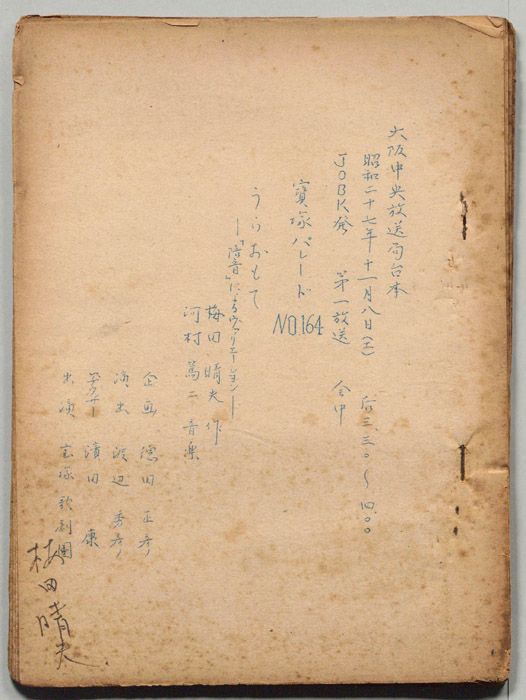 大阪中央放送局台本
昭和二十七年十一月八日(土) 后三.三〇〜四.〇〇
JOBK発 第一放送 全中
寳塚パレード NO.164
うらおもて
―「倍音」によるヴァリエーション―
梅田晴夫 作
河村篤二 音楽
企画 徳田正彦
演出 渡辺秀彦
アナウンサー 濱田 康
出演 宝塚歌劇團
梅田晴夫